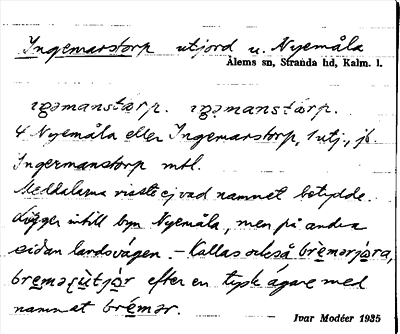 Ingemarstorp utjord u. Nyemåla
Ålems sn, Stranda hd, Kalm. l.
ıŋəmanstàrp. ıŋəmanstárp.
4 Nyemåla eller Ingemarstorp, 1 utj., jb.
Ingermanstorp mtl.
Meddelarna visste ej vad namnet betydde.
Ligger intill byn Nyemåla, men på andra
sidan landsvägen. – Kallas också
efter en tysk ägare med
namnet brémər.
Ivar Modéer 1935